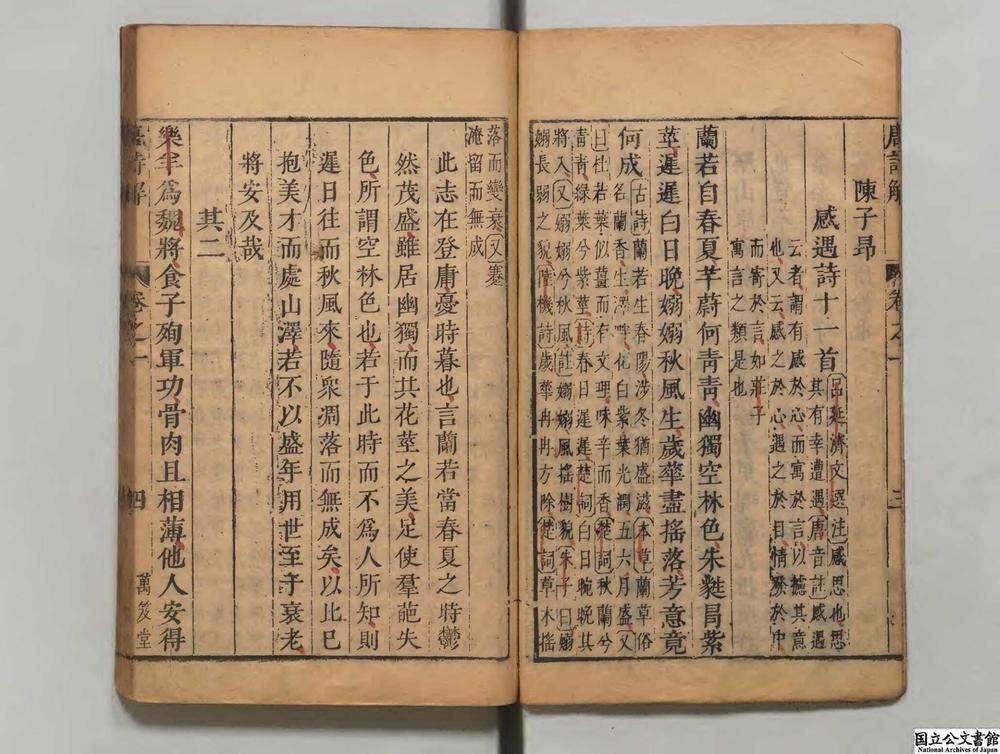 唐詩解 卷之一 三
陳子昂
感遇詩十一首
呂延濟文選注感思也思
其有幸遭遇唐音註感遇
云者謂有感於心而寓於言以攄其意
也又云感之於心遇之於目情發於中
而寄於言如莊子
寓言之類是也
蘭若自春夏芊蔚何青青幽獨空林色朱蕤冒紫
莖遲遲白日晚嫋嫋秋風生歲華盡搖落芳意竟
何成
古詩蘭若生春陽涉冬猶盛滋本草蘭草俗
名蘭香生澤畔花白紫葉光潤五六月盛又
曰杜若葉似薑而有文理味辛而香楚詞秋蘭兮
青青綠葉兮紫莖詩春日遲遲楚詞白日晼晚其
將入又嫋嫋兮秋風註嫋嫋風搖樹貌朱子曰嫋
嫋長弱之貌陸機詩歲華冉冉方除楚詞草木搖
落而變衰又蹇
淹留而無成
此志在登庸憂時暮也言蘭若當春夏之時鬱
然茂盛雖居幽獨而其花莖之美足使羣葩失
色所謂空林色也若于此時而不為人所知則
遲日往而秋風來隨衆凋落而無成矣以比己
抱美才而處山澤若不以盛年用世至于衰老
將安及哉
其二
樂羊為魏將食子殉軍功骨肉且相薄他人安得
唐詩解 卷之一 四 萬笈堂
国立公文書館
National Archives of Japan